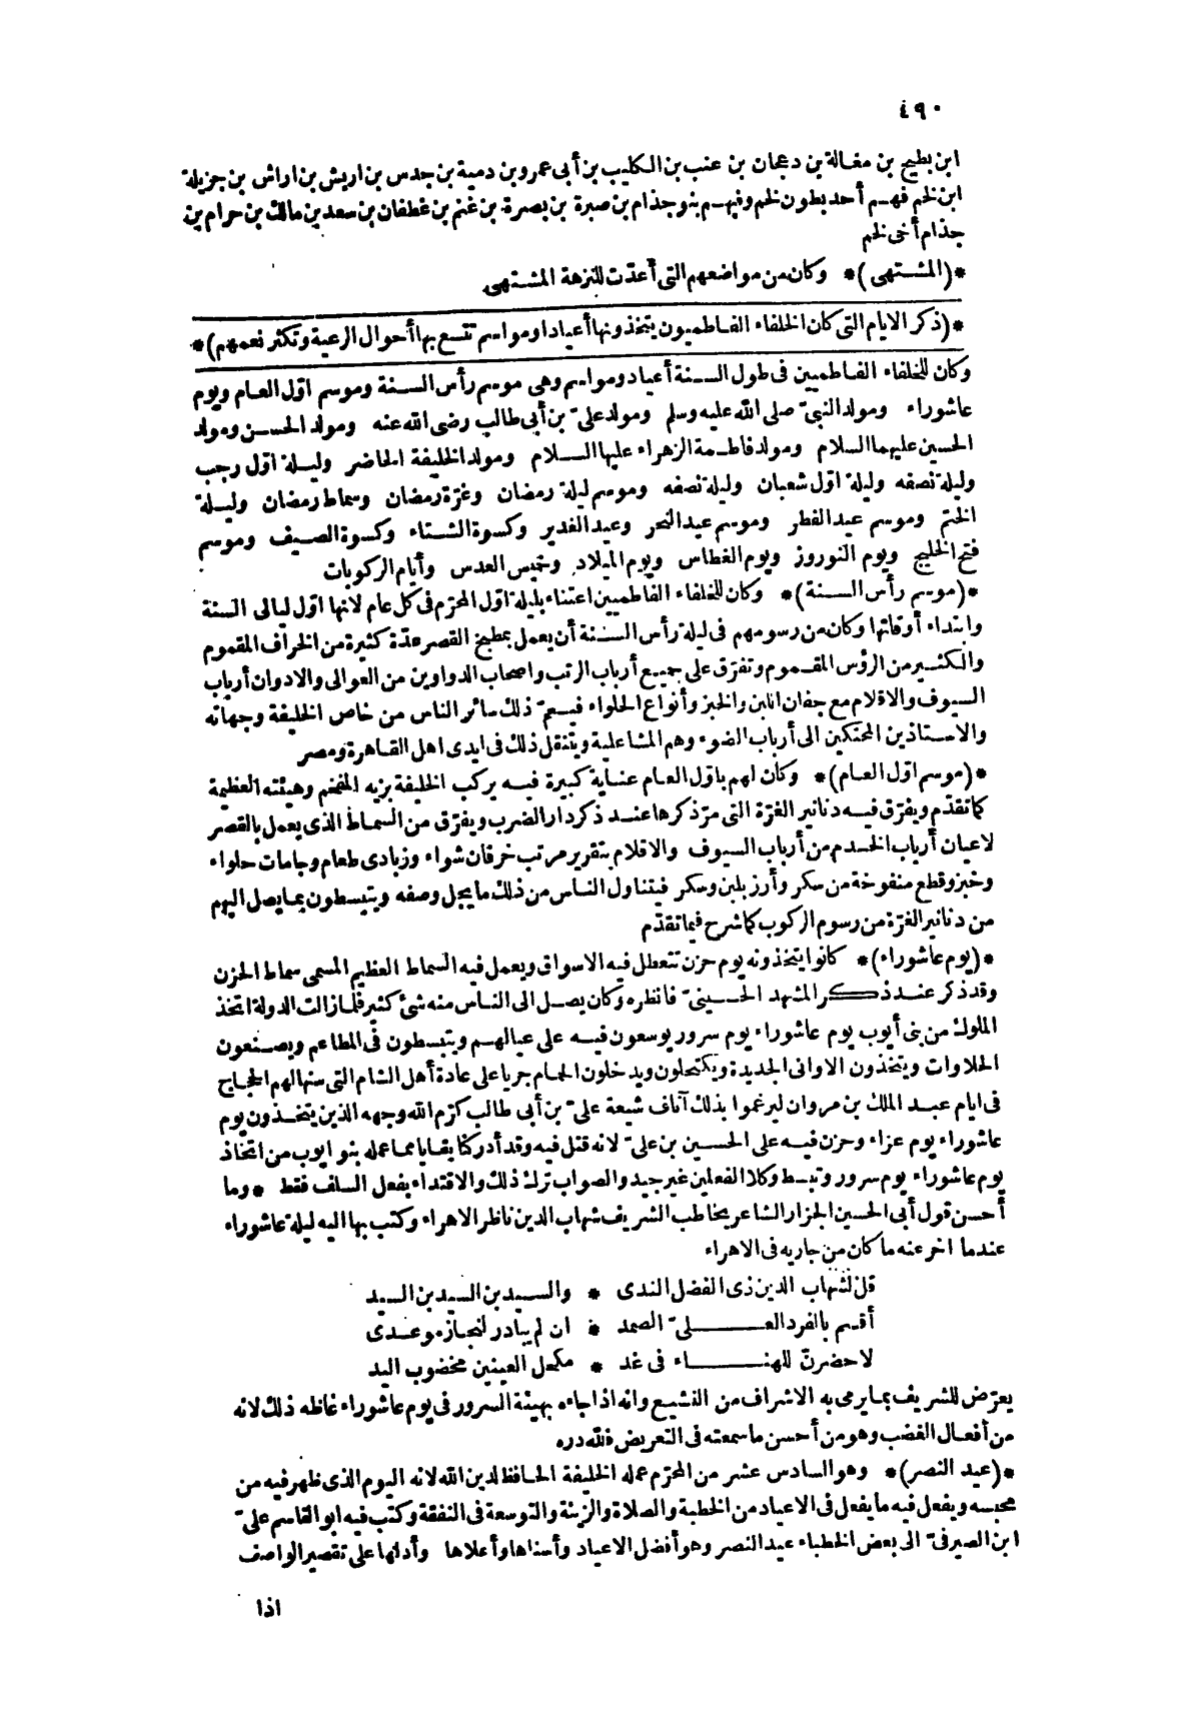 ٤٩٠
ابن بطيح بن مغالة بن دعجان بن عنب بن الكليب بن أبى عمرو بن دمية بن جدس بن اريش بن اراش بن جزيلة
ابن لخم فهم أحد بطون لخم وفيهم بنو جذام بن صبرة بن بصرة بن غنم بن غطفان بن سعد بن مالك بن حرام بن
جذام أخى لخم
*(المشتهى)* وكان من مواضعهم التى أعدّت للنزهة المشتهى
*(ذكر الايام التى كان الخلفاء الفاطميون يتخذونها أعيادا ومواسم تتسع بها أحوال الرعية وتكثر نعمهم)*
وكان للخلفاء الفاطميين فى طول السنة أعياد ومواسم وهى موسم رأس السنة وموسم اوّل العام ويوم
عاشوراء ومولد النبىّ صلى الله عليه وسلم ومولد علىّ بن أبى طالب رضى الله عنه ومولد الحسن ومولد
الحسين عليهما السلام ومولد فاطمة الزهراء عليها السلام ومولد الخليفة الحاضر وليلة اوّل رجب
وليلة نصفه وليلة اوّل شعبان وليلة نصفه وموسم ليلة رمضان وغرّة رمضان وسماط رمضان وليلة
الختم وموسم عيد الفطر وموسم عيد النحر وعيد الغدير وكسوة الشتاء وكسوة الصيف وموسم
فتح الخليج ويوم النوروز ويوم الغطاس ويوم الميلاد وخميس العدس وأيام الركوبات
*(موسم رأس السنة)* وكان للخلفاء الفاطميين اعتناء بليلة اوّل المحرّم فى كل عام لانها اوّل ليالى السنة
وابتداء أوقاتها وكان من رسومهم فى ليلة رأس السنة أن يعمل بمطبخ القصر عدّة كثيرة من الخراف المقموم
والكثير من الرؤس المقموم وتفرّق على جميع أرباب الرتب واصحاب الدواوين من العوالى والادوان أرباب
السيوف والاقلام مع جفان اللبن والخبز وأنواع الحلواء فيعمّ ذلك سائر الناس من خاص الخليفة وجهاته
والاستاذين المحنكين الى أرباب الضوء وهم المشاعلية ويتنقل ذلك فى ايدى اهل القاهرة ومصر
*(موسم اوّل العام)* وكان لهم باوّل العام عناية كبيرة فيه يركب الخليفة بزيه المفخم وهيئته العظيمة
كما تقدّم ويفرّق فيه دنانير الغرّة التى مرّ ذكرها عند ذكر دار الضرب ويفرّق من السماط الذى يعمل بالقصر
لاعيان أرباب الخدم من أرباب السيوف والاقلام بتقرير مرتب خرفان شواء وزبادى طعام وجامات حلواء
وخبز وقطع منفوخة من سكر وأرز بلبن وسكر فيتناول الناس من ذلك ما يجل وصفه ويتبسطون بما يصل اليهم
من دنانير الغرّة من رسوم الركوب كما شرح فيما تقدّم
*(يوم عاشوراء)* كانوا يتخذونه يوم حزن تتعطل فيه الاسواق ويعمل فيه السماط العظيم المسمى سماط الحزن
وقد ذكر عند ذكر المشهد الحسينىّ فانظره وكان يصل الى الناس منه شئ كثير فلما زالت الدولة اتخذ
الملوك من بنى أيوب يوم عاشوراء يوم سرور يوسعون فيه على عيالهم ويتبسطون فى المطاعم ويصنعون
الحلاوات ويتخذون الاوانى الجديدة ويكتحلون ويدخلون الحمام جريا على عادة أهل الشام التى سنها لهم الحجاج
فى ايام عبد الملك بن مروان ليرغموا بذلك آناف شيعة علىّ بن أبى طالب كرّم الله وجهه الذين يتخذون يوم
عاشوراء يوم عزاء وحزن فيه على الحسين بن علىّ لانه قتل فيه وقد أدركنا بقايا مما عمله بنو ايوب من اتخاذ
يوم عاشوراء يوم سرور وتبسط وكلا الفعلين غير جيد والصواب ترك ذلك والاقتداء بفعل السلف فقط * وما
أحسن قول أبى الحسين الجزار الشاعر يخاطب الشريف شهاب الدين ناظر الاهراء وكتب بها اليه ليلة عاشوراء
عندما اخر عنه ما كان من جاريه فى الاهراء
قل لشهاب الدين ذى الفضل الندى * والسيد بن السيد بن السيد
أقسم بالفرد العلىّ الصمد * ان لم يبادر لنجاز موعدى
لاحضرنّ للهناء فى غد * مكحل العينين مخضوب اليد
يعرّض للشريف بما يرمى به الاشراف من التشيع وانه اذا جاءه بهيئة السرور فى يوم عاشوراء غاظه ذلك لانه
من أفعال الغضب وهو من أحسن ما سمعته فى التعريض فلله دره
*(عيد النصر)* وهو السادس عشر من المحرّم عمله الخليفة الحافظ لدين الله لانه اليوم الذى ظهر فيه من
محبسه ويفعل فيه ما يفعل فى الاعياد من الخطبة والصلاة والزينة والتوسعة فى النفقة وكتب فيه ابو القاسم علىّ
ابن الصيرفىّ الى بعض الخطباء عيد النصر وهو أفضل الاعياد وأسناها وأعلاها وأدلها على تقصير الواصف
اذا